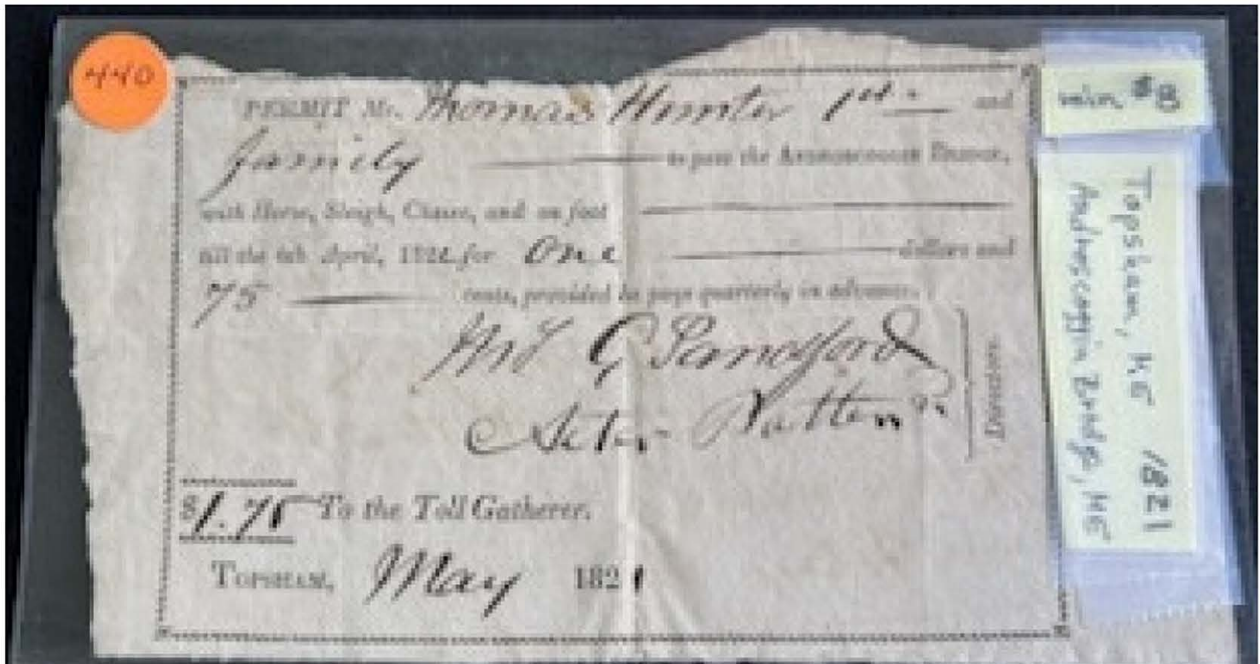 440
PERMIT Mr. Thomas Hunter 1st. and
family to pass the ANDROSCOGGIN BRIDGE,
with Horse, Sleigh, Chaise, and on foot
till the 6th April, 1822 for One dollars and
75 cents, provided he pays quarterly in advance.
G
Actor Patten
Directors.
$1.75 To the Toll Gatherer.
TOPSHAM, May 1821
min $8
Topsham, ME 1821
Androscoggin Bridge, ME